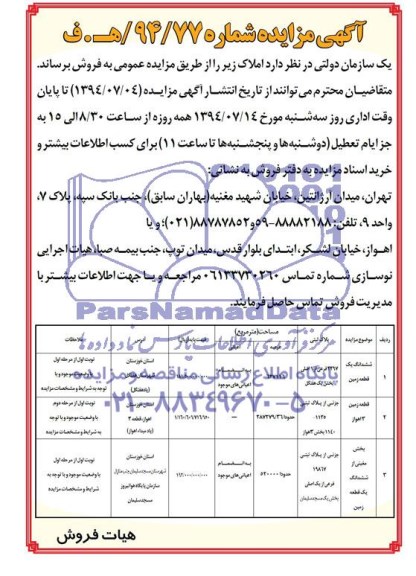 آگهی مزایده شماره ۹۴/۷۷/هـ.ف
یک سازمان دولتی در نظر دارد املاک زیر را از طریق مزایده عمومی به فروش برساند.
متقاضیان محترم می‌توانند از تاریخ انتشار آگهی مزایده (۱۳۹۴/۰۷/۰۴) تا پایان
وقت اداری روز سه‌شنبه مورخ ۱۳۹۴/۰۷/۱۴ همه روزه از ساعت ۸/۳۰ الی ۱۵ به
جز ایام تعطیل (دوشنبه‌ها و پنجشنبه‌ها تا ساعت ۱۱) برای کسب اطلاعات بیشتر و
خرید اسناد مزایده به دفتر فروش به نشانی:
تهران، میدان آرژانتین، خیابان شهید مغنیه (بهاران سابق)، جنب بانک سپه، پلاک ۷،
واحد ۹، تلفن: ۸۸۸۸۲۱۸۸-۵۹ و ۸۸۷۸۷۸۵۲ (۰۲۱) و یا
اهواز، خیابان لشکر، ابتدای بلوار قدس، میدان توپ، جنب بیمه صبا، هیات اجرایی
نوسازی شماره تماس ۰۶۱۳۳۷۳۰۲۶۰ مراجعه و یا جهت اطلاعات بیشتر با
مدیریت فروش تماس حاصل فرمایند.
ParsNamadData
پایگاه اطلاع رسانی مناقصه و مزایده
۰۲۱-۸۸۳۴۹۶۷۰-۵
ردیف موضوع مزایده پلاک ثبتی مساحت (مترمربع) ملاحظات
۱ ششدانگ یک قطعه زمین استان خوزستان نوبت اول از مرحله اول با وضعیت موجود و با توجه به شرایط و مشخصات مزایده
۲ قطعه زمین ۳ اهواز جزئی از پلاک ثبتی ۱۱۳۵ ۱۱۴۰ بخش ۳ اهواز — استان خوزستان نوبت اول از مرحله دوم با وضعیت موجود و با توجه به شرایط و مشخصات مزایده
۳ بخش معینی از ششدانگ یک قطعه زمین جزئی از پلاک ثبتی ۱۹۸۶۷ فرعی از یک اصلی بخش یک مسجدسلیمان حدودا ۵۲۰۰۰۰ به انضمام اعیانی‌های موجود استان خوزستان نوبت اول از مرحله اول با وضعیت موجود و با توجه به شرایط و مشخصات مزایده
هیات فروش